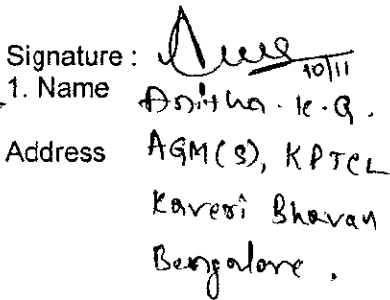 Signature :
10/11
1. Name Anitha. K. G.
Address AGM(S), KPTCL
Kaveri Bhavan
Bengalore.